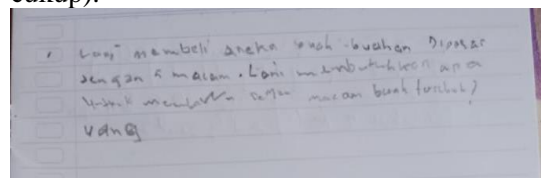 Lani membeli aneka buah-buahan Dipasar
dengan 5 macam. Lani membutuhkan apa
Untuk membeli macam buah tersebut?
Uang